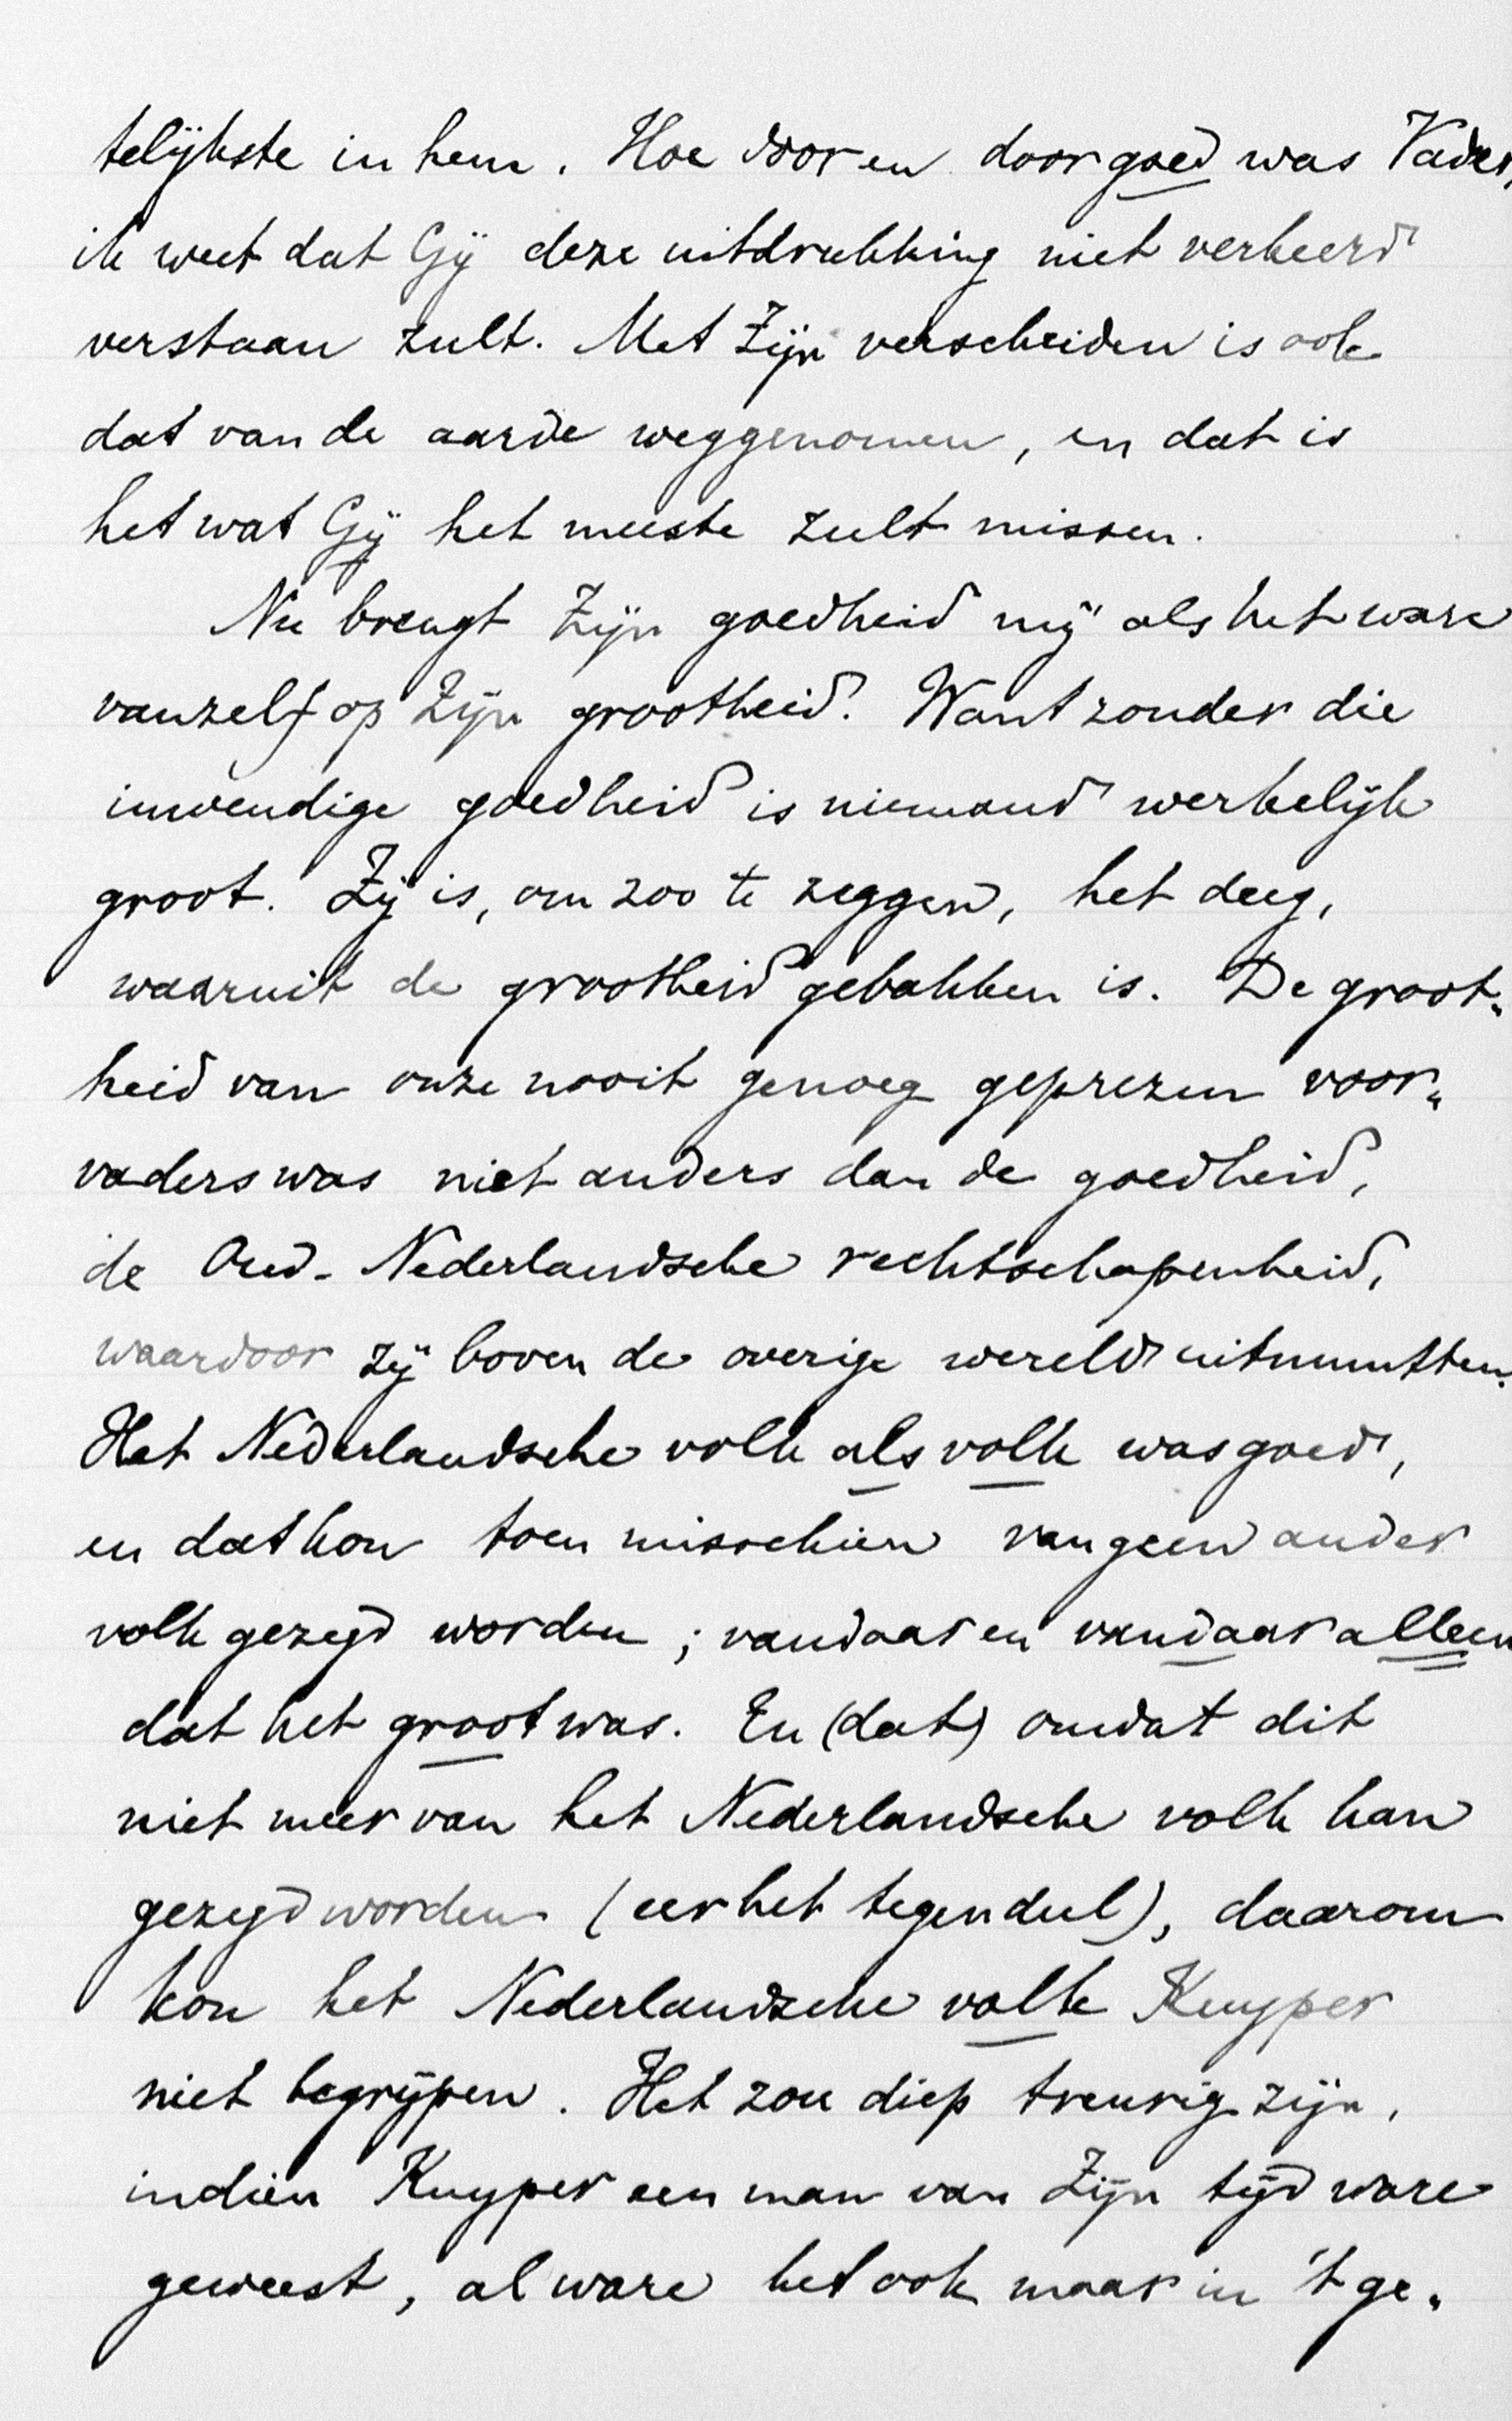 telijkste in hem. Hoe door en door goed was Vader,
ik weet dat Gij deze uitdrukking niet verkeerd
verstaan zult. Met Zijn verscheiden is ook
dat van de aarde weggenomen, en dat is
het wat Gij het meeste zult missen.
Nu brengt Zijn goedheid mij als het ware
vanzelf op Zijn grootheid. Want zonder die
inwendige goedheid is niemand werkelijk
groot. Zij is, om zoo te zeggen, het deeg,
waaruit de grootheid gebakken is. De groot-
heid van onze nooit genoeg geprezen voor-
vaders was niet anders dan de goedheid,
de Oud-Nederlandsche rechtschapenheid,
waardoor zij boven de overige wereld uitmuntten.
Het Nederlandsche volk als volk was goed,
en dat kon toen misschien van geen ander
volk gezegd worden; vandaar en vandaar alleen
dat het groot was. En (dat) omdat dit
niet meer van het Nederlandsche volk kan
gezegd worden (eer het tegendeel), daarom
kon het Nederlandsche volk Kuyper
niet begrijpen. Het zou diep treurig zijn,
indien Kuyper een man van Zijn tijd ware
geweest, al ware het ook maar in 't ge-